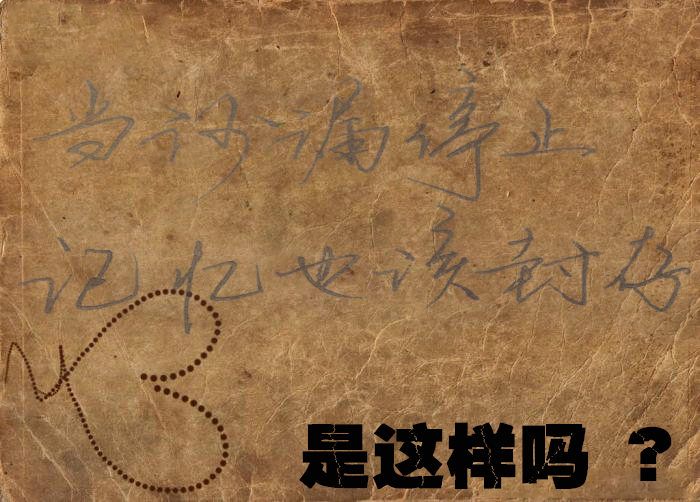 当沙漏停止
记忆也该封存
是这样吗 ？